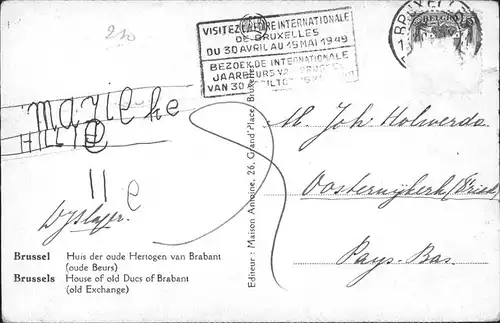 210
VISITEZ LA FOIRE INTERNATIONALE
DE BRUXELLES
DU 30 AVRIL AU 15 MAI 1949
BEZOEK DE INTERNATIONALE
JAARBEURS
VAN 30
BRUXELLES
BELGI
marieke
11 e
M. Joh Holwerda
Oosternijkerk (Fries
Pays-Bas.
Editeur : Maison Antoine, 26, Grand'Place, Brux
Brussel Huis der oude Hertogen van Brabant
(oude Beurs)
Brussels House of old Ducs of Brabant
(old Exchange)